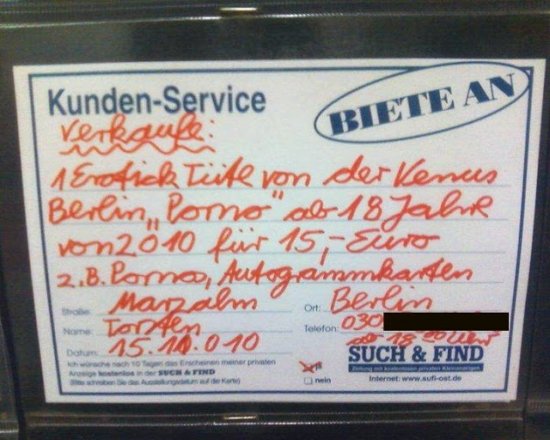 Kunden-Service
BIETE AN
Verkaufe:
1 Erotick Tüte von der Venus
Berlin „Porno" ab 18 Jahre
von 2010 für 15,- Euro
z.B. Pornos, Autogrammkarten
Straße: Marzahn Ort: Berlin
Name: Torsten Telefon: 030
Datum: 15.10.010 ab 18 00 Uhr
Ich wünsche nach 10 Tagen das Erscheinen meiner privaten
Anzeige kostenlos in der SUCH & FIND
(Bitte schreiben Sie das Ausstellungsdatum auf die Karte)
ja
nein
SUCH & FIND
Zeitung mit kostenlosen privaten Kleinanzeigen
Internet: www.sufi-ost.de